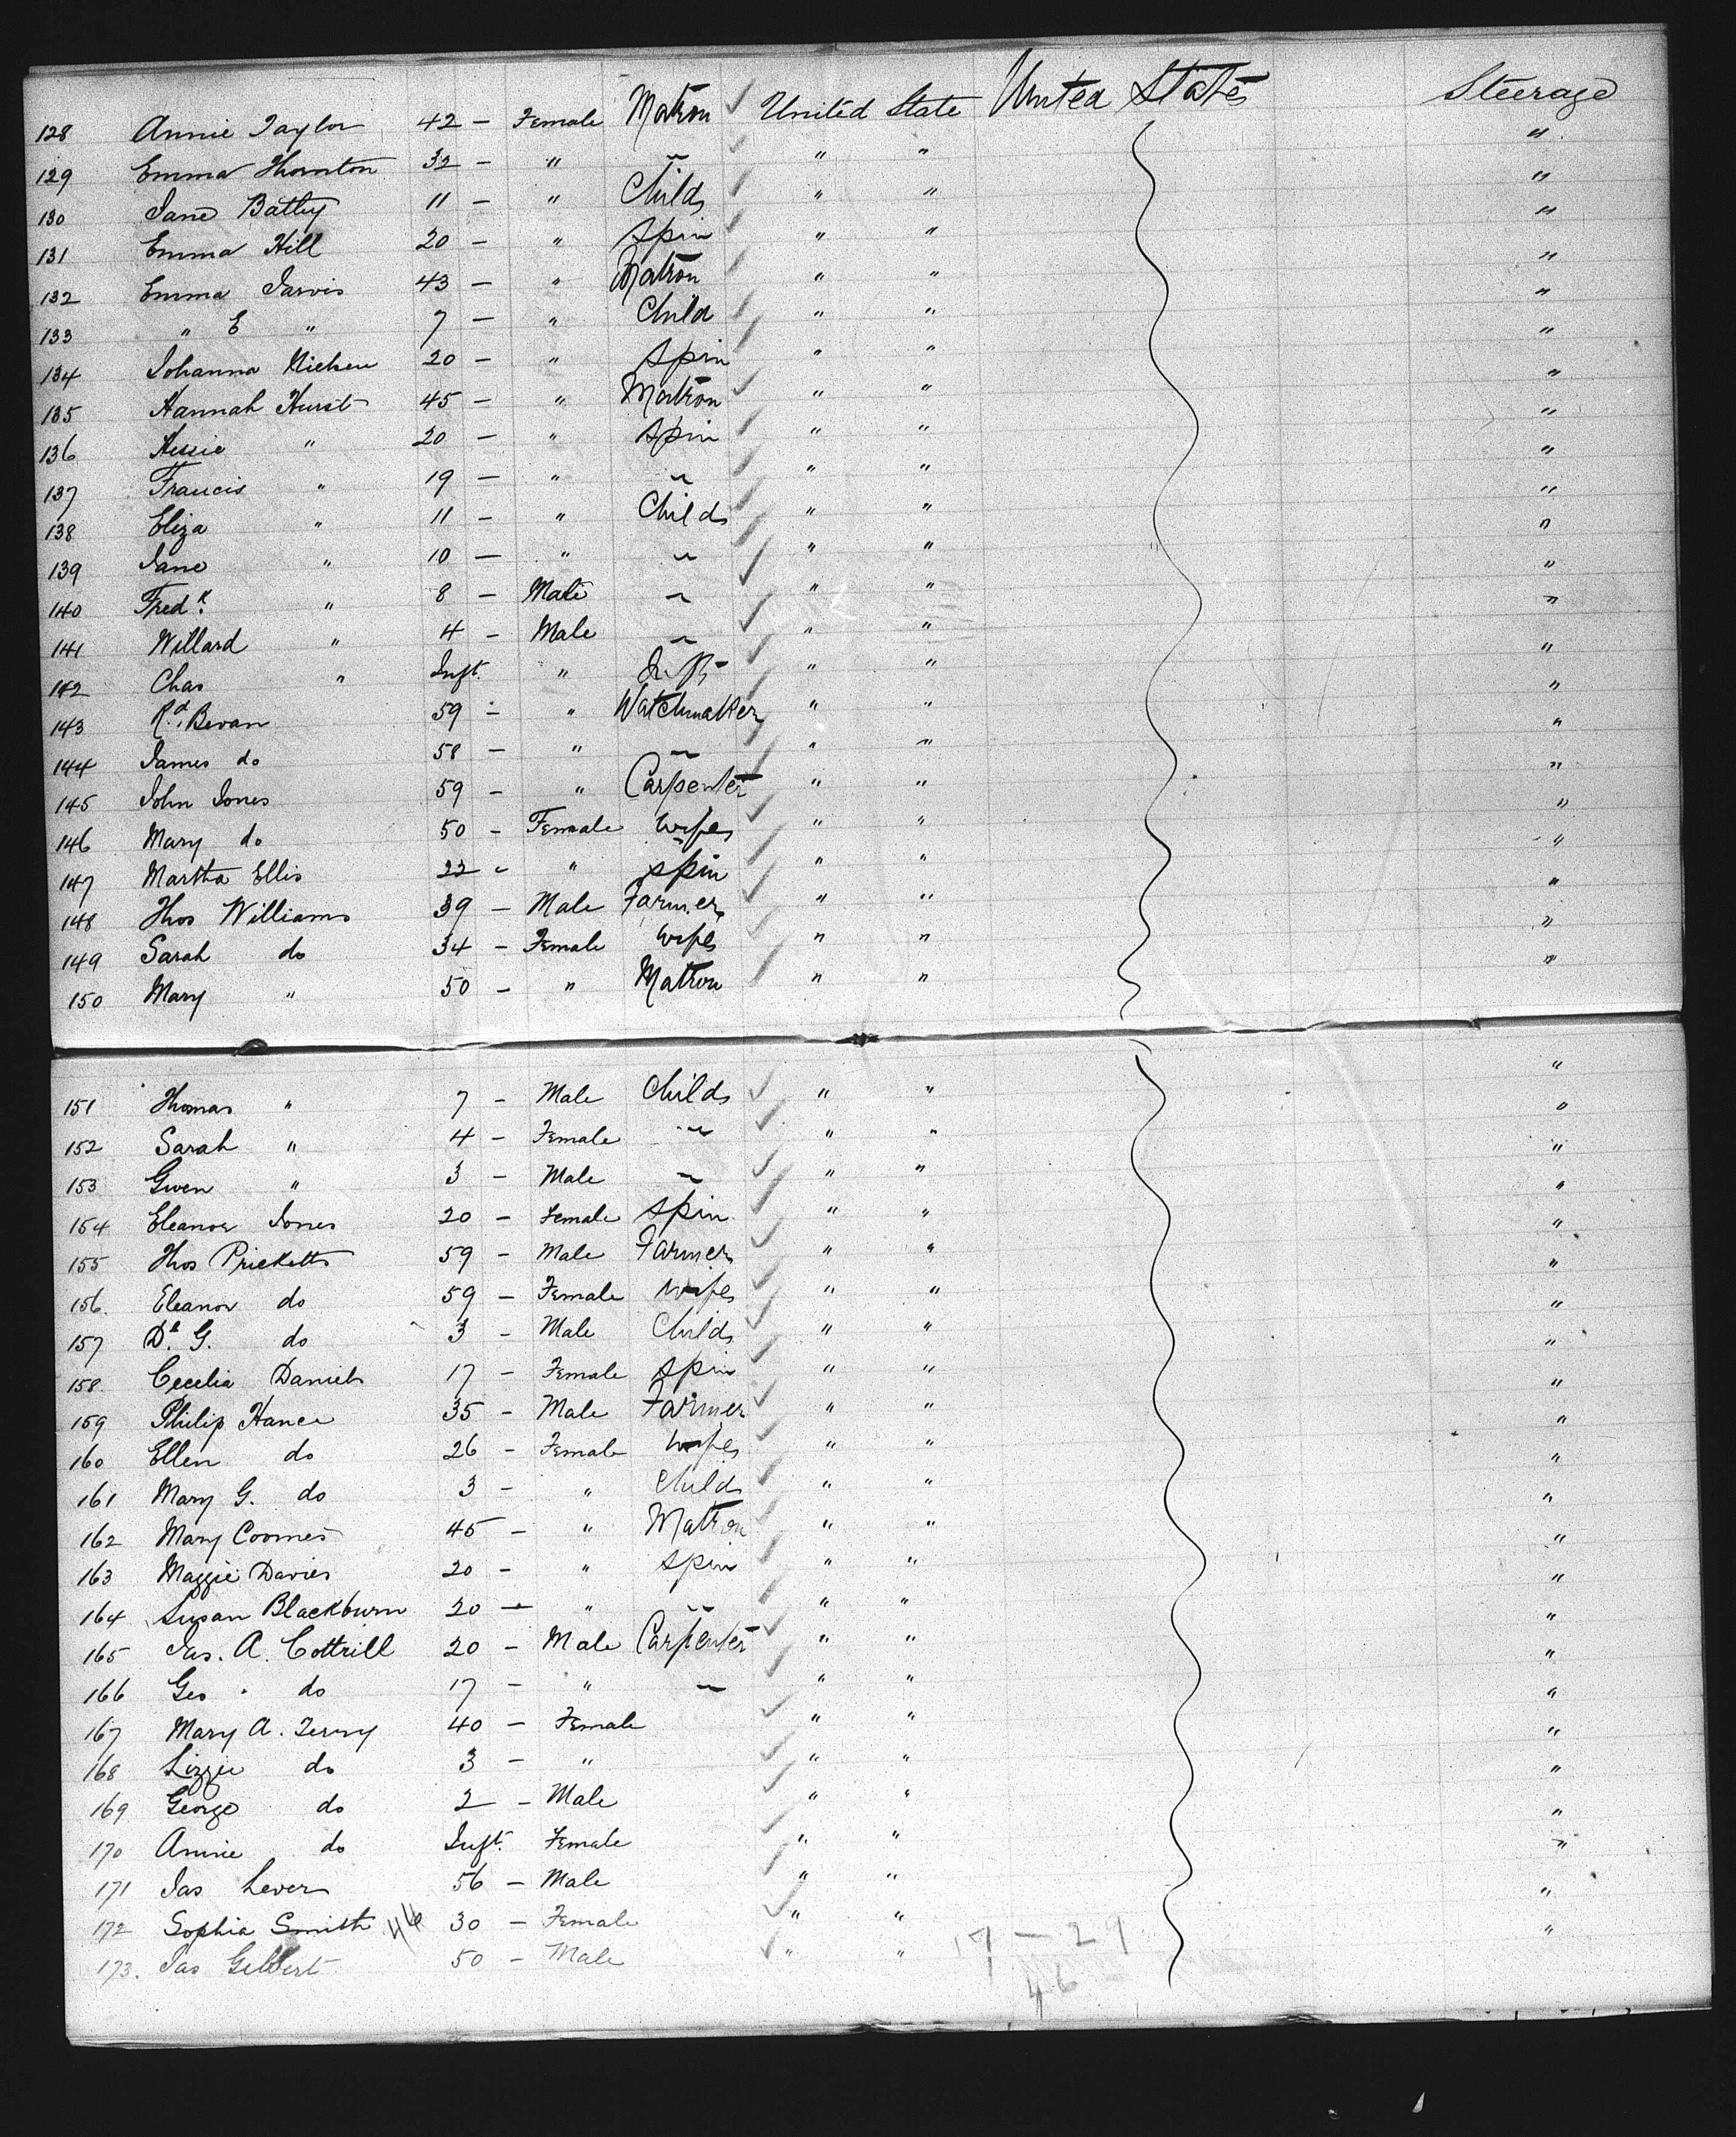 128 Annie Taylor 42 - Female Matron United State United States Steerage
129 Emma Thornton 32 - " " " " "
130 Jane Batley 11 - " Child " " "
131 Emma Hill 20 - " Spin " " "
132 Emma Jarvis 43 - " Matron " " "
133 " E " 7 - " Child " " "
134 Johanna 20 - " Spin " " "
135 Hannah Hurst 45 - " Matron " " "
136 " 20 - " Spin " " "
137 Francis " 19 - " " " " "
138 Eliza " 11 - " Child " " "
139 Jane " 10 - " " " " "
140 Fredk. " 8 - Male " " " "
141 Willard " 4 - Male " " " "
142 Chas " Inft. " " " "
143 Rd. Bevan 59 - " Watchmaker " " "
144 James do 58 - " " " " "
145 John Jones 59 - " Carpenter " " "
146 Mary do 50 - Female Wife " " "
147 Martha Ellis 22 - " Spin " " "
148 Thos Williams 39 - Male Farmer " " "
149 Sarah do 34 - Female Wife " " "
150 Mary " 50 - " Matron " " "
151 Thomas " 7 - Male Child " " "
152 Sarah " 4 - Female " " " "
153 Gwen " 3 - Male " " " "
154 Eleanor Jones 20 - Female Spin " " "
155 Thos Pricketts 59 - Male Farmer " " "
156. Eleanor do 59 - Female Wife " " "
157 Dd. G. do 3 - Male Child " " "
158. Cecelia Daniels 17 - Female Spin " " "
159 Philip Hance 35 - Male Farmer " " "
160 Ellen do 26 - Female Wife " " "
161 Mary G. do 3 - " Child " " "
162 Mary Coomes 45 - " Matron " " "
163 Maggie Davies 20 - " Spin " " "
164 Susan Blackburn 20 - " " " " "
165 Jas. A. Cottrill 20 - Male Carpenter " " "
166 Geo. do 17 - " " " " "
167 Mary A. Terry 40 - Female " " "
168 Lizzie do 3 - " " " "
169 George do 2 - Male " " "
170 Annie do Inft. Female " " "
171 Jas Lever 56 - Male " " "
172 Sophia Smith 30 - Female " " "
173. Jas Gilbert 50 - Male " " "
17 - 29
46